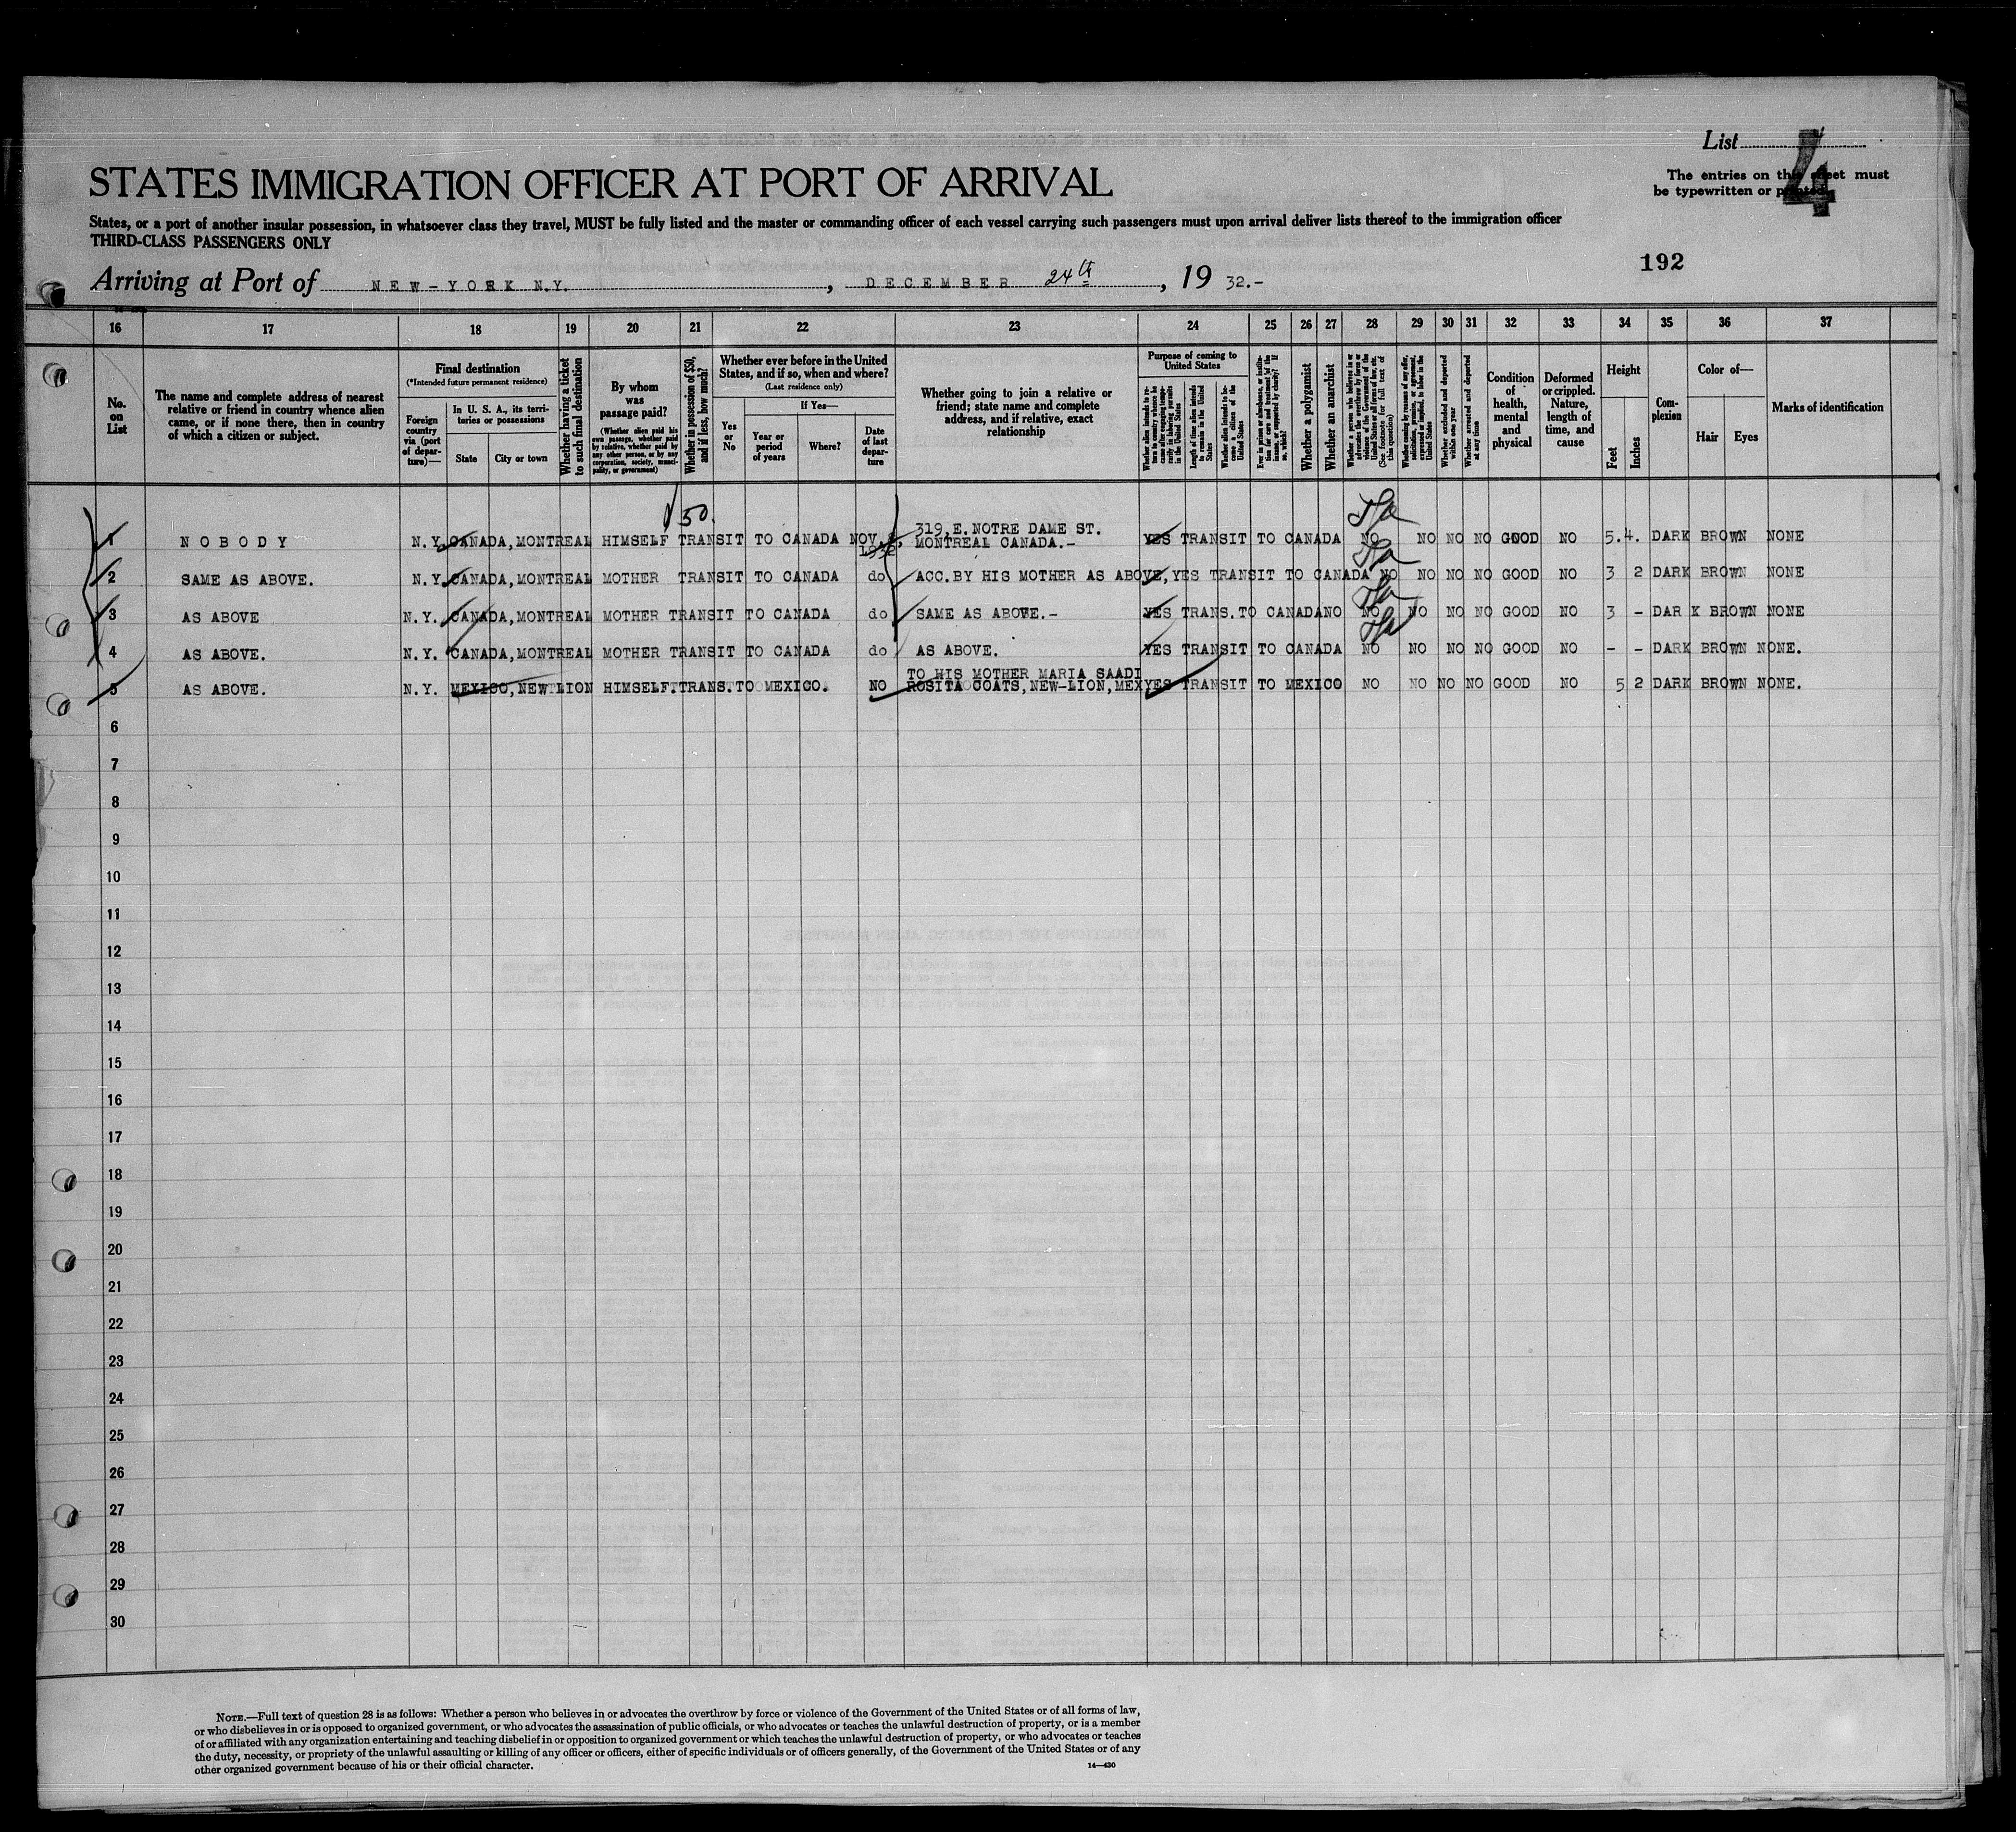 List 4
STATES IMMIGRATION OFFICER AT PORT OF ARRIVAL
The entries on this sheet must
be typewritten or printed.
States, or a port of another insular possession, in whatsoever class they travel, MUST be fully listed and the master or commanding officer of each vessel carrying such passengers must upon arrival deliver lists thereof to the immigration officer
THIRD-CLASS PASSENGERS ONLY
192
Arriving at Port of NEW-YORK N.Y. , DECEMBER 24th , 19 32.-
16 17 18 19 20 21 22 23 24 25 26 27 28 29 30 31 32 33 34 35 36 37
No. on List
The name and complete address of nearest relative or friend in country whence alien came, or if none there, then in country of which a citizen or subject.
Final destination
(*Intended future permanent residence)
Foreign country via (port of departure)—
In U. S. A., its territories or possessions
State
City or town
Whether having a ticket to such final destination
By whom was passage paid?
(Whether alien paid his own passage, whether paid by relative, whether paid by any other person, or by any corporation, society, municipality, or government)
Whether in possession of $50, and if less, how much?
Whether ever before in the United States, and if so, when and where?
(Last residence only)
Yes or No
If Yes—
Year or period of years
Where?
Date of last departure
Whether going to join a relative or friend; state name and complete address, and if relative, exact relationship
Purpose of coming to United States
Whether alien intends to return to country whence he came after engaging temporarily in laboring pursuits in the United States
Length of time alien intends to remain in the United States
Whether alien intends to become a citizen of the United States
Ever in prison or almshouse, or institution for care and treatment of the insane, or supported by charity? If so, which?
Whether a polygamist
Whether an anarchist
Whether a person who believes in or advocates the overthrow by force or violence of the Government of the United States or all forms of law, etc. (See footnote for full text of this question)
Whether coming by reason of any offer, solicitation, promise, or agreement, expressed or implied, to labor in the United States
Whether excluded and deported within one year
Whether arrested and deported at any time
Condition of health, mental and physical
Deformed or crippled. Nature, length of time, and cause
Height
Feet
Inches
Complexion
Color of—
Hair
Eyes
Marks of identification
50.
1 NOBODY N.Y. CANADA, MONTREAL HIMSELF TRANSIT TO CANADA NOV. 1932 319, E. NOTRE DAME ST. MONTREAL CANADA.- YES TRANSIT TO CANADA NO NO NO NO GOOD NO 5.4. DARK BROWN NONE
2 SAME AS ABOVE. N.Y. CANADA, MONTREAL MOTHER TRANSIT TO CANADA do ACC. BY HIS MOTHER AS ABOVE, YES TRANSIT TO CANADA NO NO NO NO GOOD NO 3 2 DARK BROWN NONE
3 AS ABOVE N.Y. CANADA, MONTREAL MOTHER TRANSIT TO CANADA do SAME AS ABOVE.- YES TRANS. TO CANADA NO NO NO NO NO GOOD NO 3 - DAR K BROWN NONE
4 AS ABOVE. N.Y. CANADA, MONTREAL MOTHER TRANSIT TO CANADA do AS ABOVE. YES TRANSIT TO CANADA NO NO NO NO GOOD NO - - DARK BROWN NONE.
5 AS ABOVE. N.Y. MEXICO, NEW LION HIMSELF. TRANS. TO MEXICO. NO TO HIS MOTHER MARIA SAADI ROSITA COATS, NEW-LION, MEX YES TRANSIT TO MEXICO NO NO NO NO GOOD NO 5 2 DARK BROWN NONE.
6
7
8
9
10
11
12
13
14
15
16
17
18
19
20
21
22
23
24
25
26
27
28
29
30
NOTE.—Full text of question 28 is as follows: Whether a person who believes in or advocates the overthrow by force or violence of the Government of the United States or of all forms of law,
or who disbelieves in or is opposed to organized government, or who advocates the assassination of public officials, or who advocates or teaches the unlawful destruction of property, or is a member
of or affiliated with any organization entertaining and teaching disbelief in or opposition to organized government or which teaches the unlawful destruction of property, or who advocates or teaches
the duty, necessity, or propriety of the unlawful assaulting or killing of any officer or officers, either of specific individuals or of officers generally, of the Government of the United States or of any
other organized government because of his or their official character.
14—430